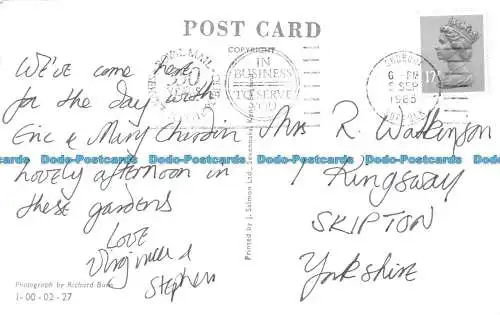 POST CARD
COPYRIGHT
We've come here
for the day with
Eric & Mary
Lovely afternoon in
these gardens
Love
Virginia &
Stephen
Photograph by Richard
1-00-02-27
Printed by J. Salmon Ltd., Sevenoaks, Kent
ROYAL MAIL
350
IN
BUSINESS
TO SERVE
YOU
6 - PM
SEP
1985
17
Mrs R. Watkinson
1 Kingsway
SKIPTON
Yorkshire
Dodo-Postcards Dodo-Postcards Dodo-Postcards Dodo-Postcards